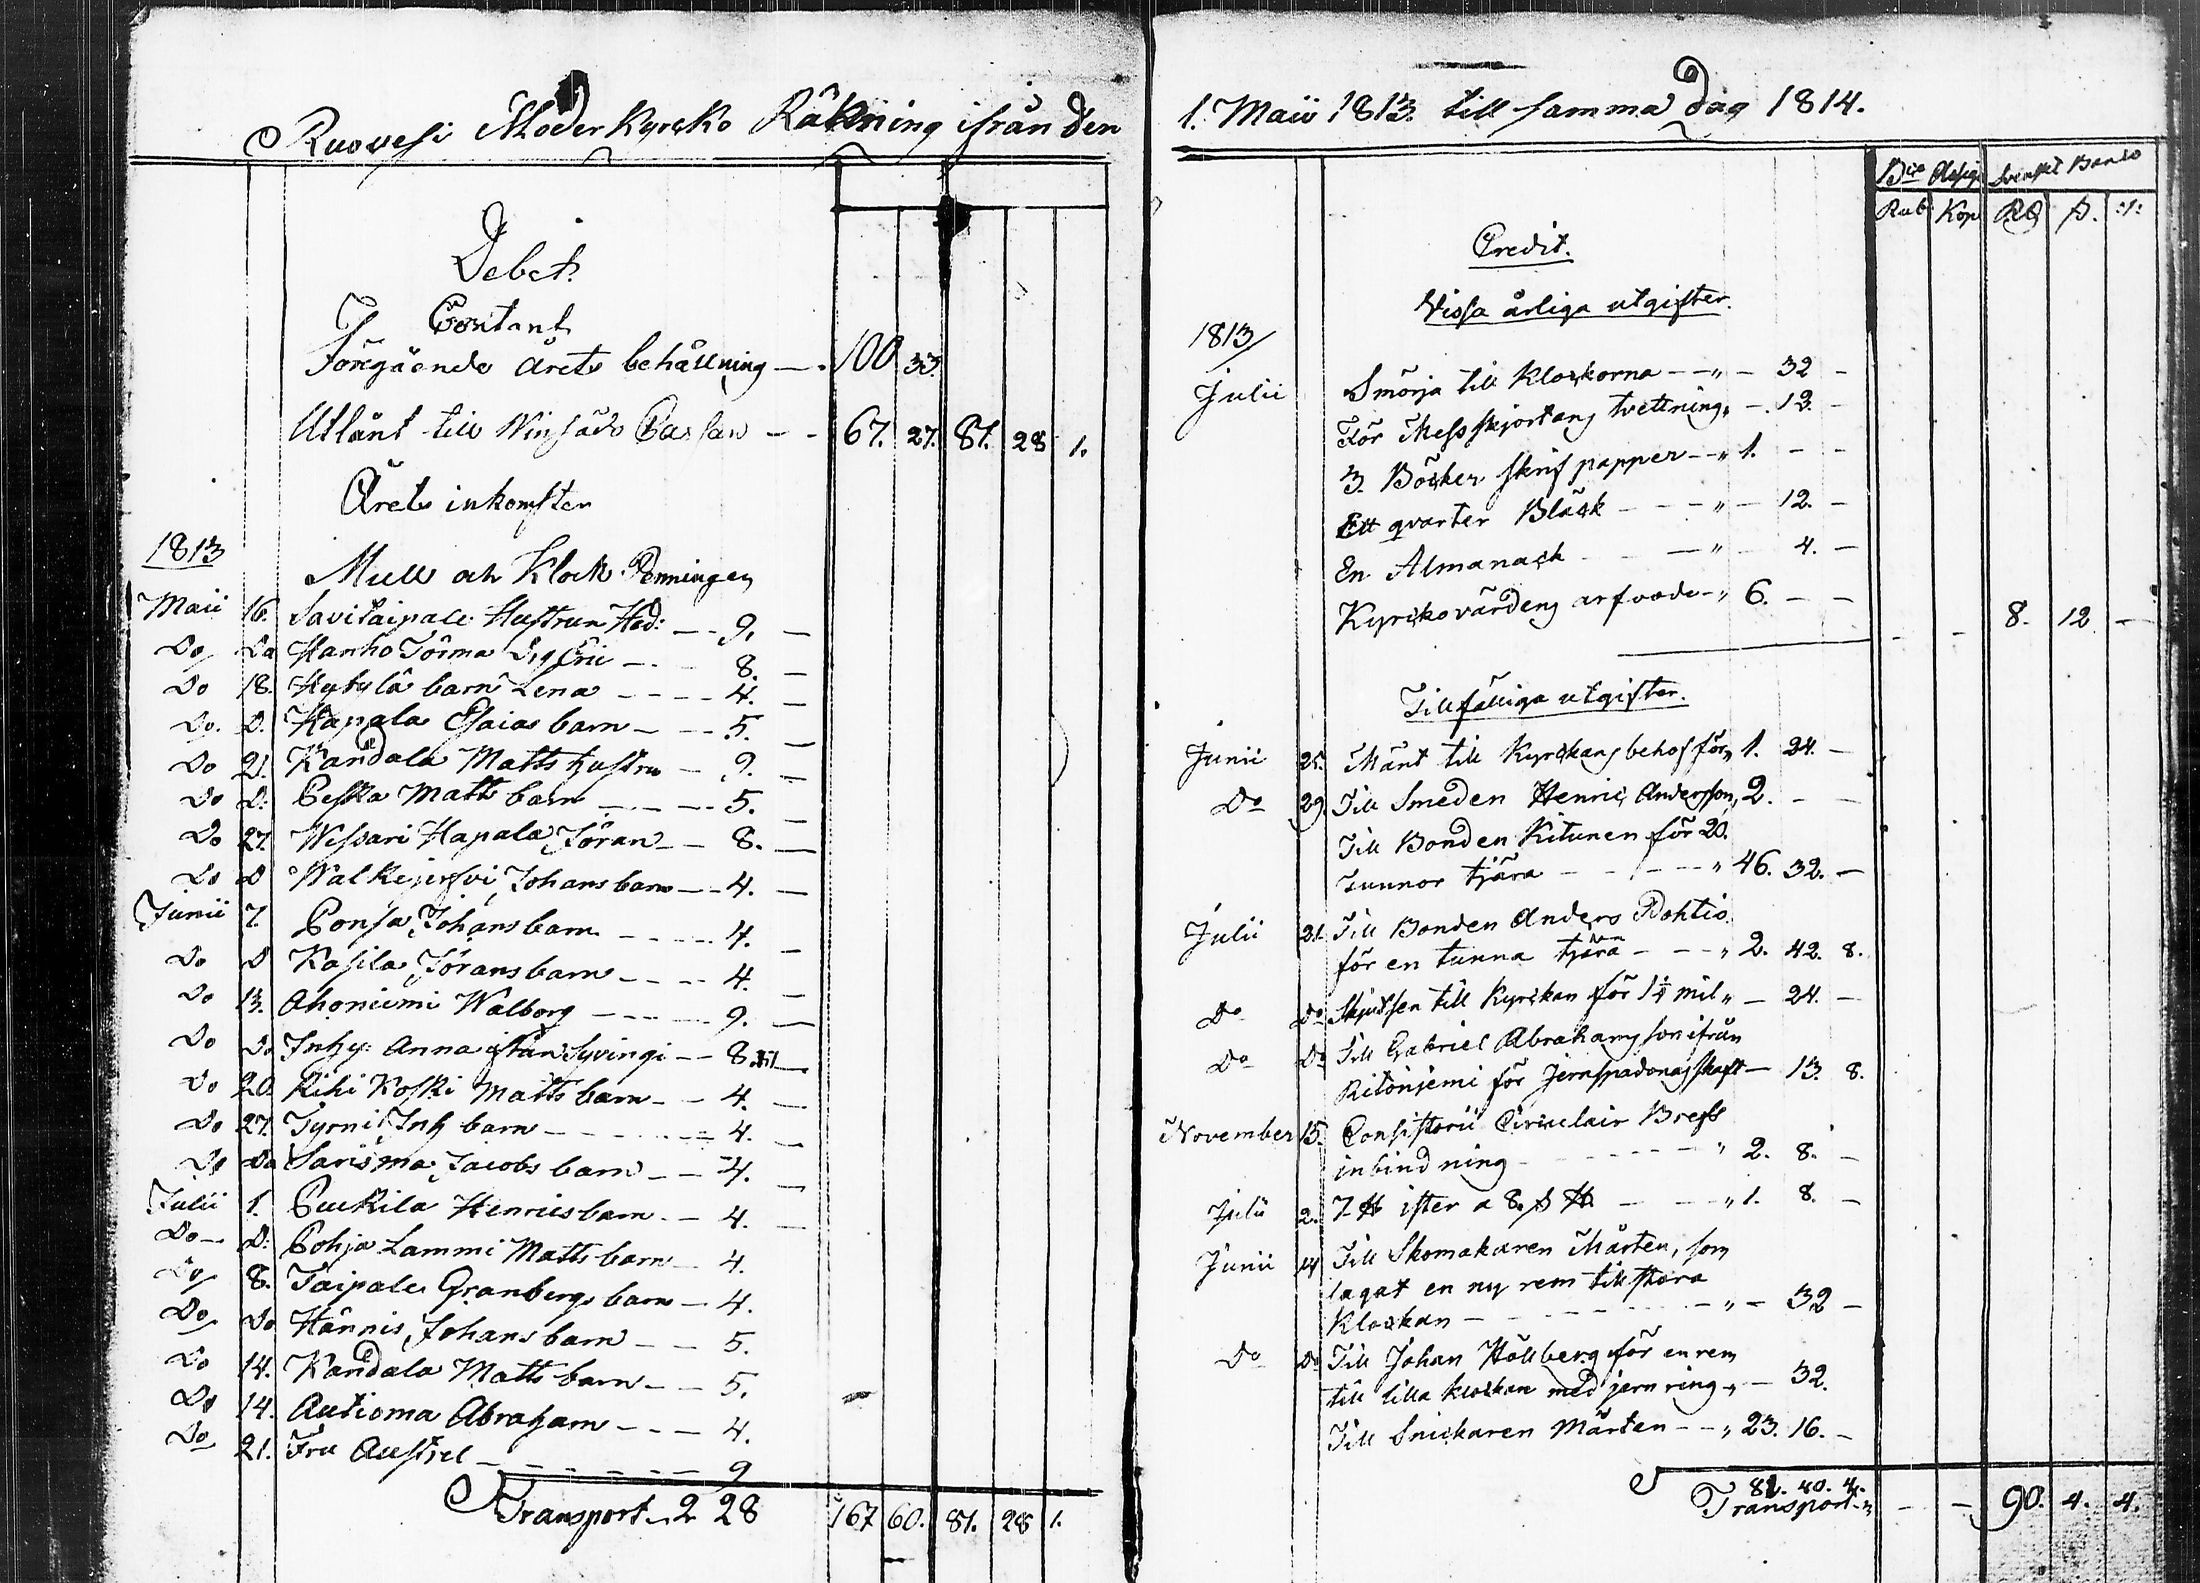 Ruovesi Moder Kyrcko Räkning ifrån den
Debet.
Contant
Föregående Årets behållning — 100 33.
Utlånt till 67. 27. 81. 28 1.
Årets inkomster
1813
Mull och Klock Penningen
Maii 16. Savitaipale Hustrun Hed: — 9. —
Do Do Hanho Jörma — 8. —
Do 18. Hytylä barn Lena — 4. —
Do. D. Kapala Esaias barn — 5. —
Do 21. Kandala Matts hustru — 9. —
Do D. Peska Matts barn — 5. —
Do 27. Wessari Hapala Jöran — 8. —
Do D Walkejerfvi Johans barn — 4. —
Junii 7. Ponsa Johans barn — 4. —
Do D Kasila Jörans barn — 4. —
Do 13. Ahoniemi Walborg — 9. —
Do Do Inhy: Anna ifrån Syvingi — 8 —
Do 20. Rihi Koski Matts barn — 4. —
Do 27. Tyrni Inh barn — 4. —
Do Do Sarisma Jacobs barn — 4. —
Julii 1. Puckila Henrics barn — 4. —
Do D. Pohja Lammi Matts barn — 4.
Do 8. Taipale Granbergs barn — 4.
Do Do Hännis Johans barn — 5.
Do 14. Kandala Matts barn — 5.
Do 14. Autioma Abraham — 4.
Do 21. Fru Austrel — 9
Transport 2 28 167 60. 81. 28 1.
1. Maii 1813. till samma dag 1814.
Bco Assign Svenskt Banco
Rub Kop RD s. :1:
Credit.
Vissa årliga utgifter.
1813
Julii Smörja till Klockorna — " — 32 —
För Messskjortans tvettning " — 12. —
3. Böcker skrif papper — " 1. — —
Ett qvarter Bläck — " — 12. —
En Almanach — " — 4. —
Kyrckovärdens arfvode — " 6. — — — — 8. 12 —
Tillfälliga utgifter.
Junii 25. Mänt till Kyrckans behof för " 1. 24. —
Do 29. Till Smeden Henric Andersson, 2. — —
Till Bonden Kitunen för 20.
Tunnor tjära — " 46. 32. —
Julii 21. Till Bonden Anders Pohtio
för en tunna tjära — " 2. 42. 8.
Do Do Skjutsen till Kyrckan för 1 1/4 mil " — 24. —
Do Do Till Gabriel Abrahamsson ifrån
Ritoniemi för Jernspadonas skaft — 13. 8.
November 15. Consistorii Circulair Brefs
inbindning — " 2. 8. —
Julii 2. 7 ℔ ister a 8. s ℔ — " 1. 8. —
Junii 14 Till Skomakaren Mårten, som
lagat en ny rem till stora
Klockan — " — 32 —
Do Do Till Johan Hållberg för en rem
till lilla klockan med jern ring " — 32.
Till Snickaren Mårten — " 23. 16. —
81. 40. 4.
Transport " — — 90. 4. 4.